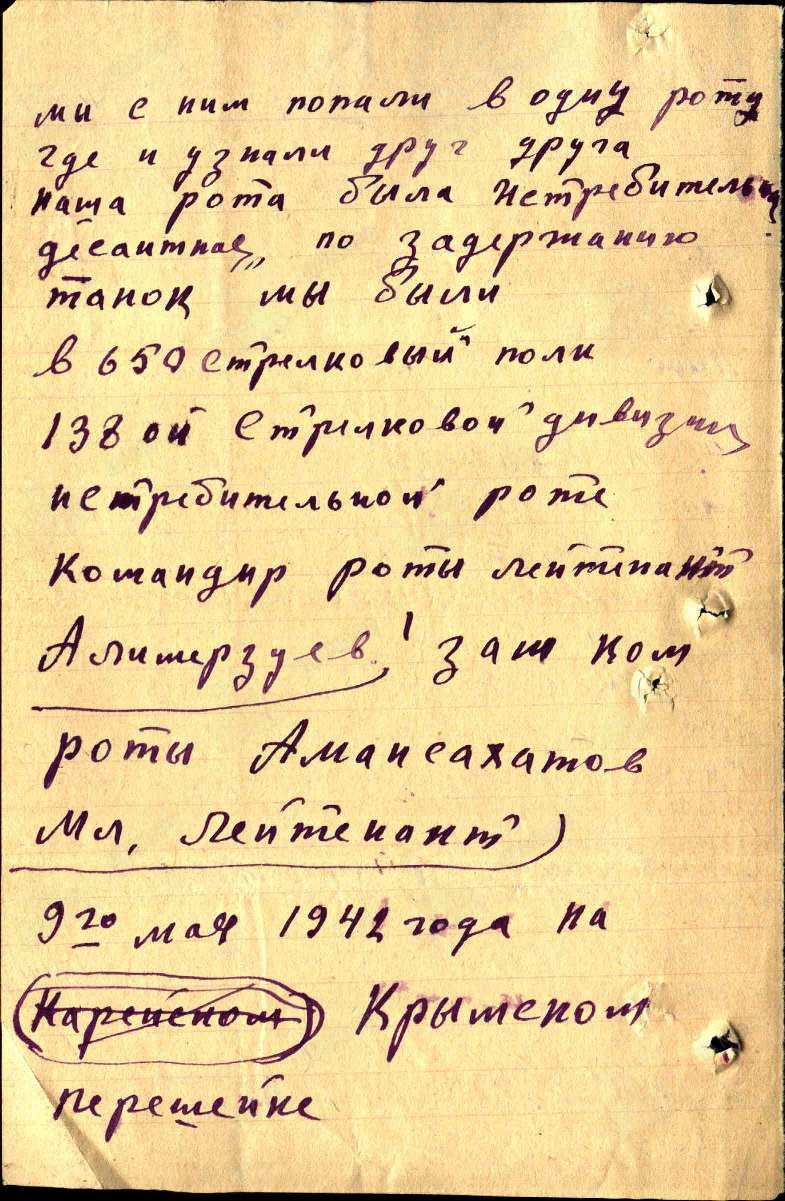 ми с ним попали в одну роту
где и узнали друг друга
наша рота была истребительна
десантная, по задержанию
танок" мы были
в 650 стрелковый полк
138 ой Стрелковой дивизии
истребительной роте
Командир роты лейтенант
Алимерзуев! зам ком
роты Амансахатов
Мл. Лейтенант)
9го мая 1942 года на
Крымском
перешейке